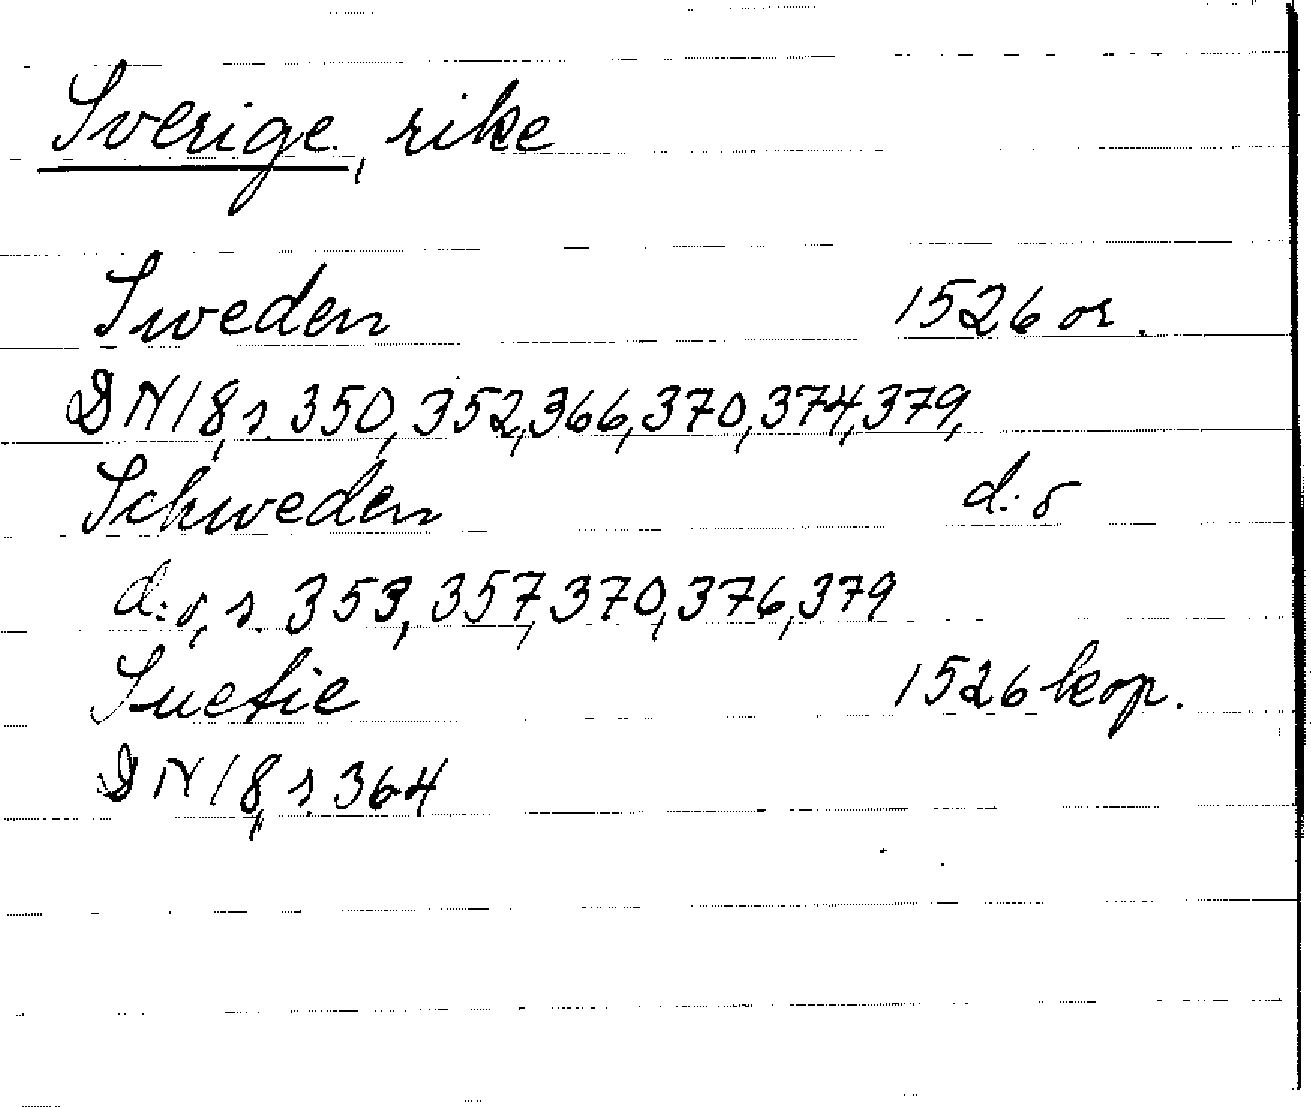 Sverige, rike
Sweden 1526 or.
DN 18, s. 350, 352, 366, 370, 374, 379,
Schweden d:o
d:o, s. 353, 357, 370, 376, 379
Suetie 1526 kop.
DN 18, s. 364